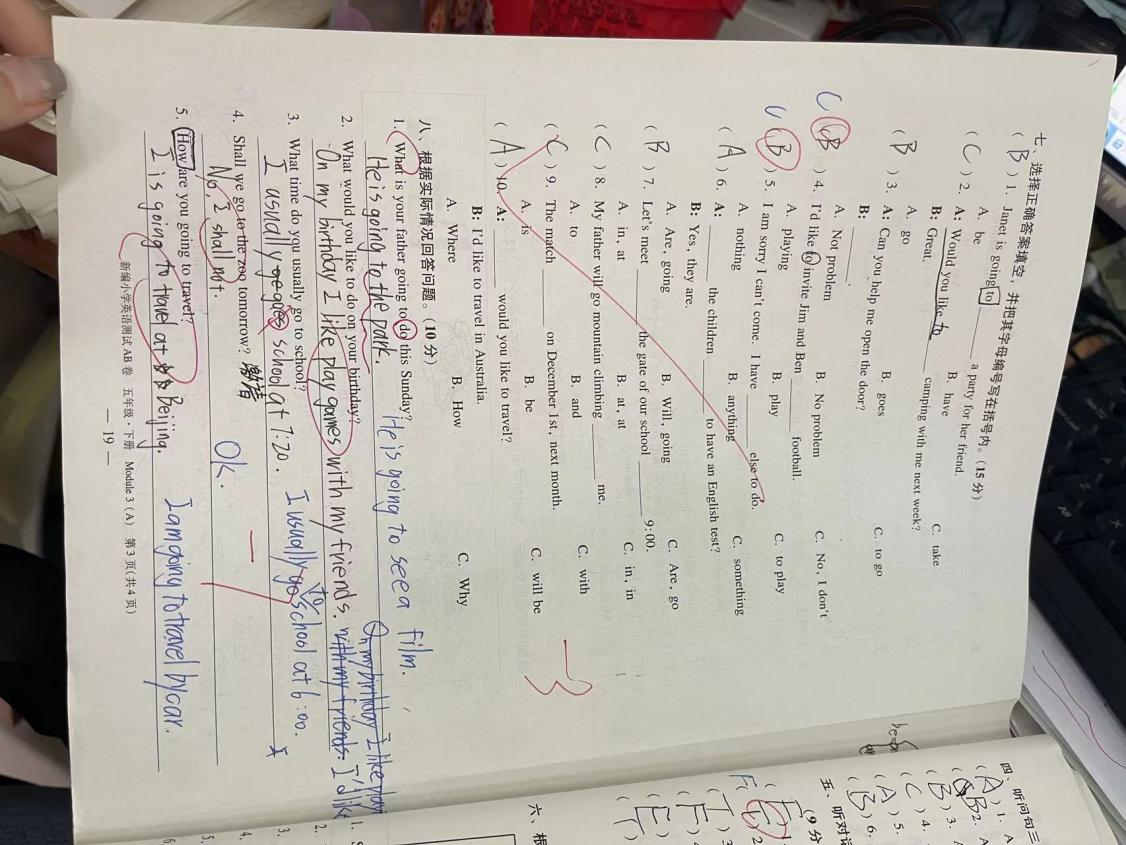 七、选择正确答案填空，并把其字母编号写在括号内。(15 分)
( B ) 1. Janet is going to ______ a party for her friend.
A. be B. have C. take
( C ) 2. A: Would you like to ______ camping with me next week?
B: Great.
A. go B. goes C. to go
( B ) 3. A: Can you help me open the door?
B: ______.
A. Not problem B. No problem C. No, I don't
C ( B ) 4. I'd like to invite Jim and Ben ______ football.
A. playing B. play C. to play
( B ) 5. I am sorry I can't come. I have ______ else to do.
A. nothing B. anything C. something
( A ) 6. A: ______ the children ______ to have an English test?
B: Yes, they are.
A. Are, going B. Will, going C. Are, go
( B ) 7. Let's meet ______ the gate of our school ______ 9:00.
A. in, at B. at, at C. in, in
( C ) 8. My father will go mountain climbing ______ me.
A. to B. and C. with
( C ) 9. The match ______ on December 1st, next month.
A. is B. be C. will be
( A ) 10. A: ______ would you like to travel?
B: I'd like to travel in Australia.
A. Where B. How C. Why
八、根据实际情况回答问题。(10 分)
1. What is your father going to do this Sunday?
He is going to the park. He is going to see a film.
2. What would you like to do on your birthday? On my birthday I like play
On my birthday I like play games with my friends. with my friends. I'd like
3. What time do you usually go to school?
I usually go school at 7:20. I usually go to school at 6:00.
4. Shall we go to the zoo tomorrow? 邀请
No, I shall not. Ok.
5. How are you going to travel?
I is going to travel at Beijing. I am going to travel by car.
新编小学英语测试 AB 卷 五年级·下册 Module 3 (A) 第 3 页(共 4 页)
— 19 —
四、听问句三
( A ) 1. A
2. A
( B ) 3.
( C ) 4.
( A ) 5.
( B ) 6.
五、听对话
(9 分
六、根
1.
2.
3.
4.
5.
6